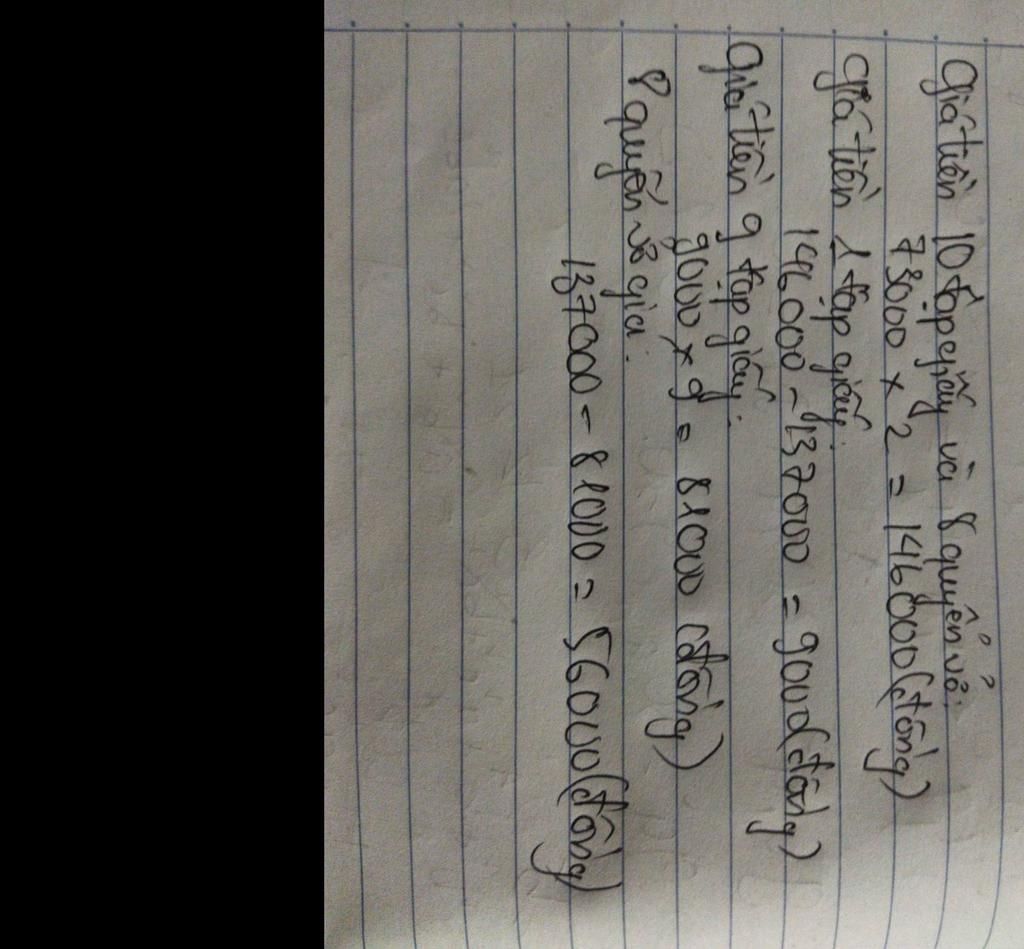 giá tiền 10 tập giấy và 8 quyển vở:
73000 x 2 = 146000 (đồng)
giá tiền 1 tập giấy:
146000 - 137000 = 9000 (đồng)
giá tiền 9 tập giấy:
9000 x 9 = 81000 (đồng)
8 quyển vở giá:
137000 - 81000 = 56000 (đồng)